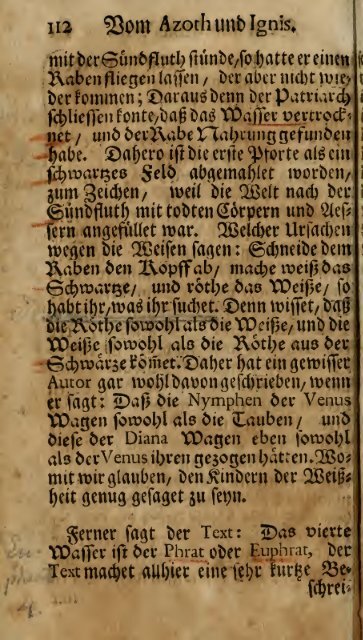 112 Vom Azoth und Ignis.
mit der Sündfluth stünde, so hatte er einen
Raben fliegen lassen / der aber nicht wie-
der kommen; Daraus denn der Patriarch
schliessen konte, daß das Wasser vertrock-
net / und der Rabe Nahrung gefunden
habe. Dahero ist die erste Pforte als ein
schwartzes Feld abgemahlet worden,
zum Zeichen, weil die Welt nach der
Sündfluth mit todten Cörpern und Aes-
sern angefüllet war. Welcher Ursachen
wegen die Weisen sagen: Schneide dem
Raben den Kopff ab, mache weiß das
Schwartze, und röthe das Weiße, so
habt ihr, was ihr suchet. Denn wisset, daß
die Röthe sowohl als die Weiße, und die
Weiße sowohl als die Röthe aus der
Schwärtze kom̃et. Daher hat ein gewisser
Autor gar wohl davon geschrieben, wenn
er sagt: Daß die Nymphen der Venus
Wagen sowohl als die Tauben / und
diese der Diana Wagen eben sowohl
als der Venus ihren gezogen hätten. Wo-
mit wir glauben, den Kindern der Weiß-
heit genug gesaget zu seyn.
Ferner sagt der Text: Das vierte
Wasser ist der Phrat oder Euphrat, der
Text machet allhier eine sehr kurtze Be-
schrei-